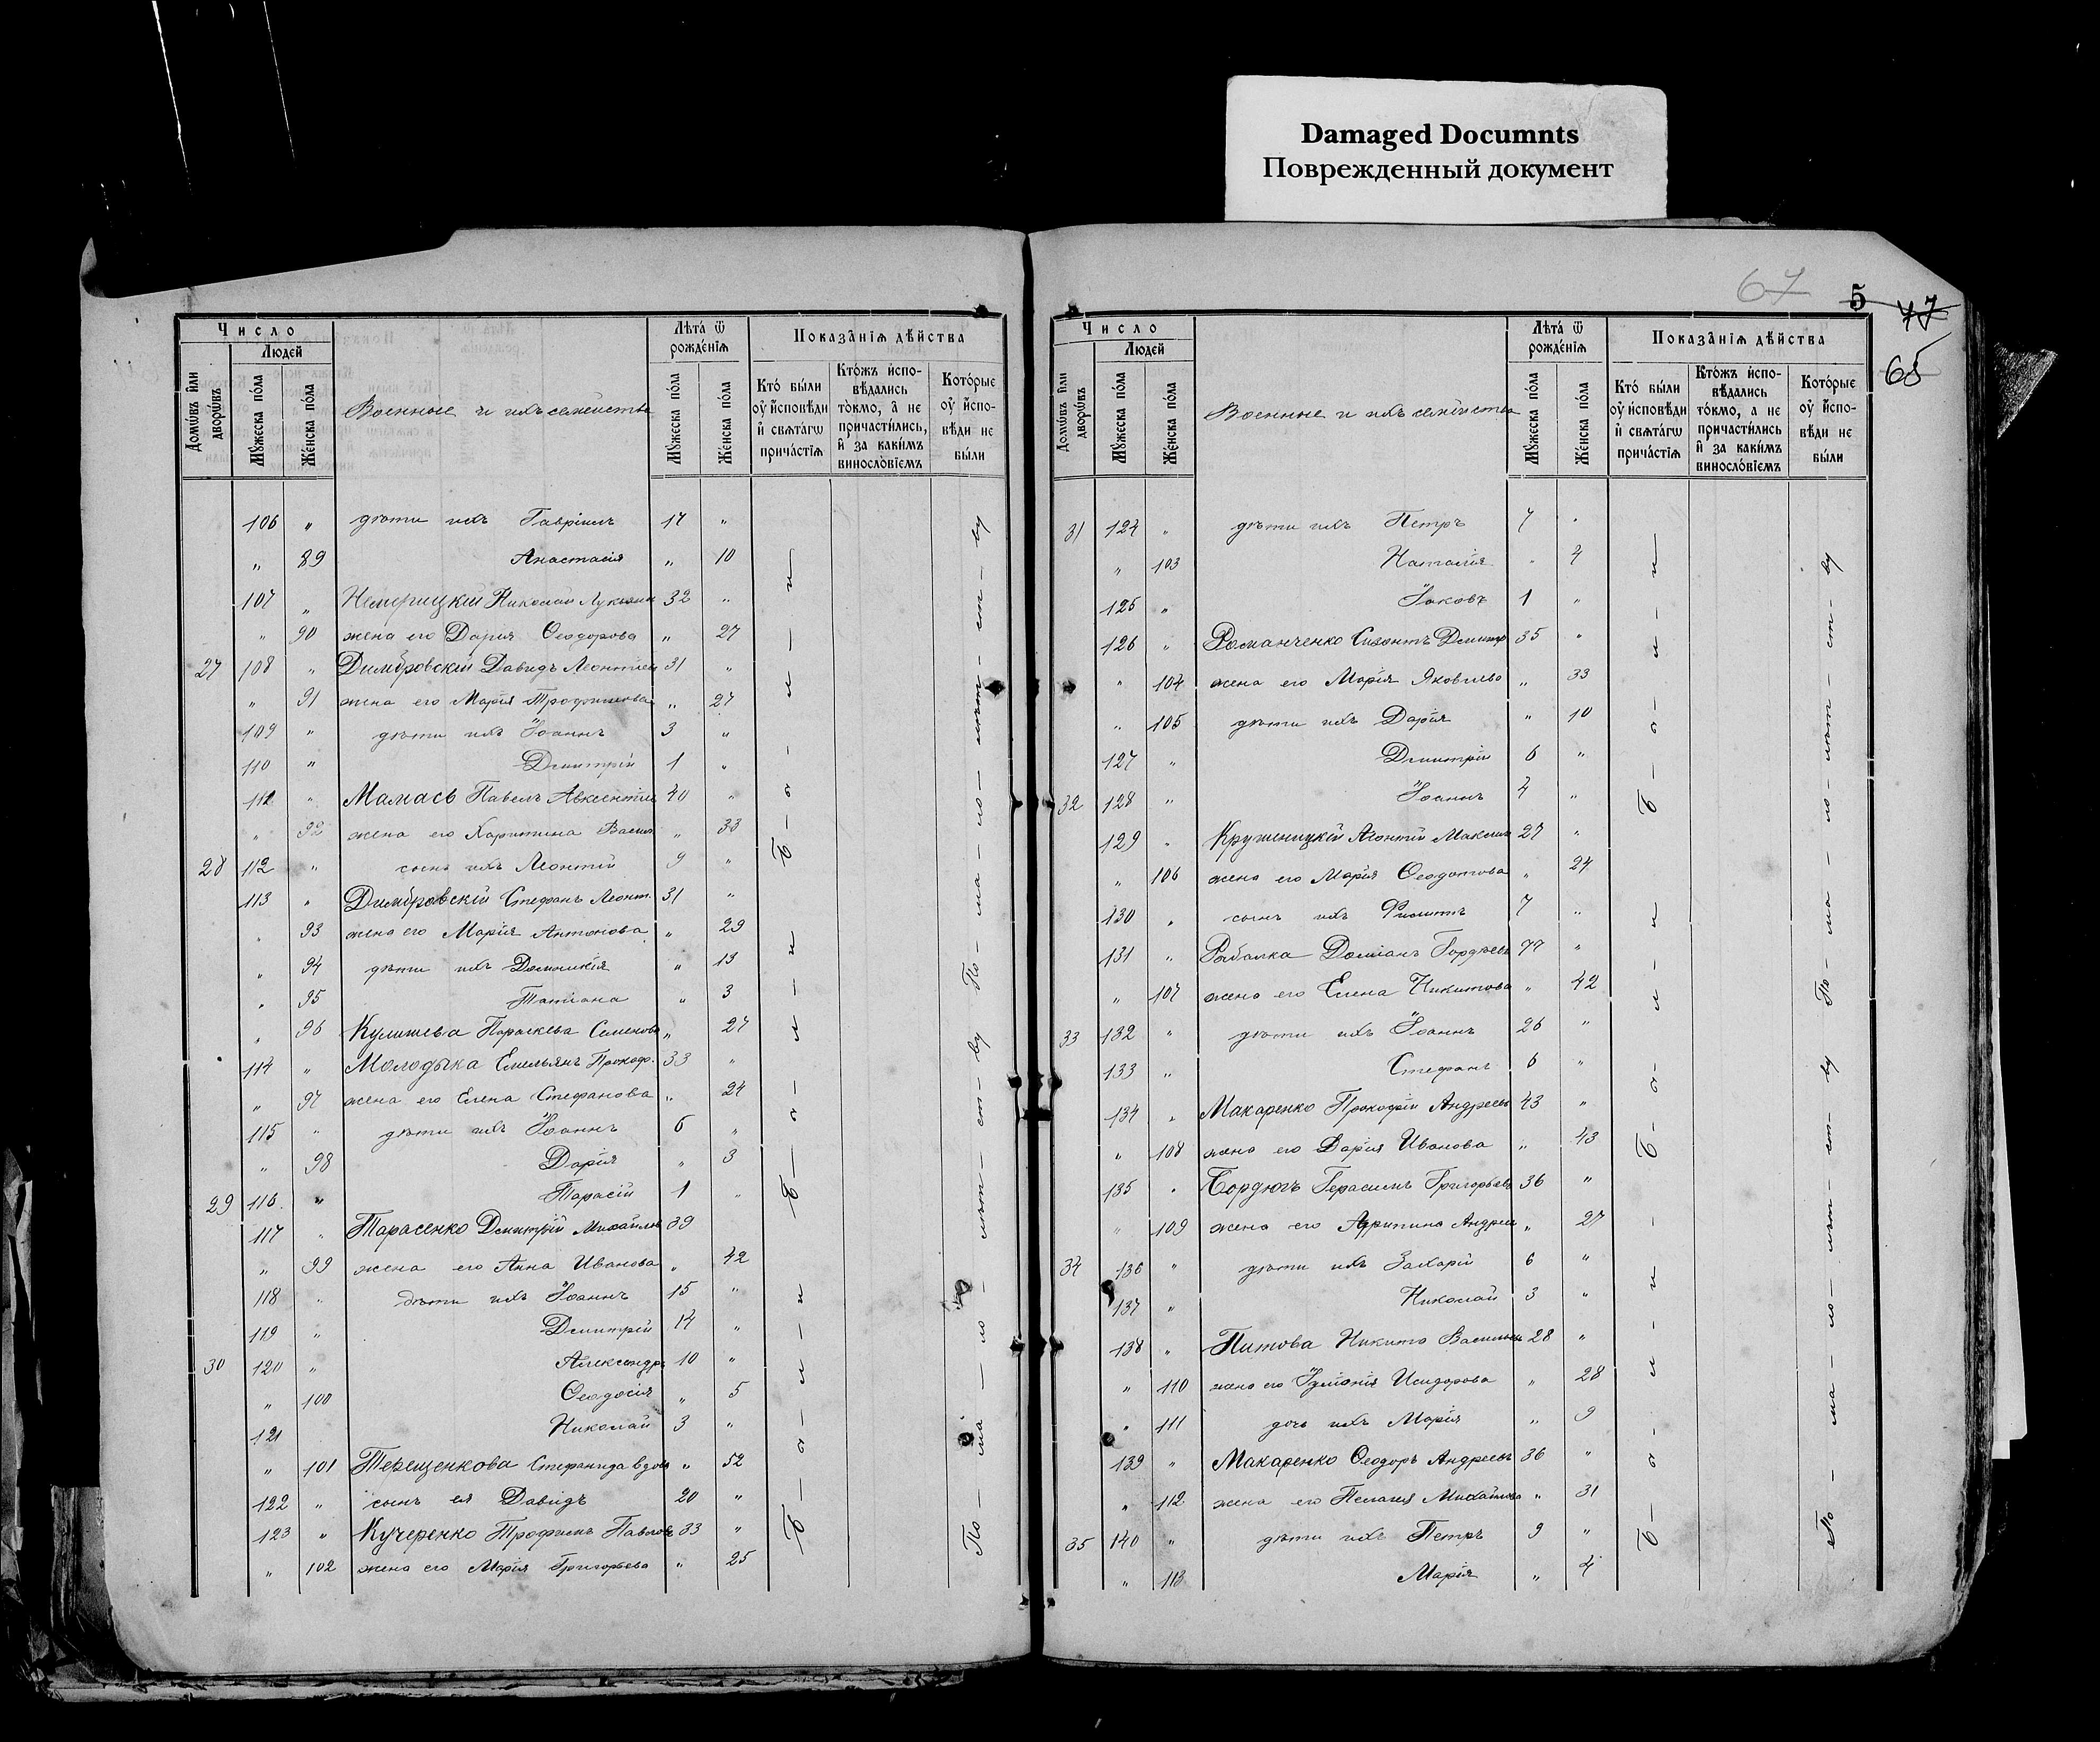 Damaged Documnts
Поврежденный документ
67
5
77
65
Число
Людей
Домѡвъ и҆лѝ дворѡвъ
Мꙋжеска по́ла
Же́нска по́ла
Военные и ихъ семейства
Лѣта̀ ѿ рожде́нїѧ
Мꙋжеска по́ла
Же́нска по́ла
Показа̑нїѧ дѣ́йства
Кто̀ бы́ли оу҆ и҆сповѣди и҆ свѧта́гѡ прича́стїѧ
Кто́жъ и҆спо-вѣдались то́кмо, а҆ не причасти́лись, и҆ за каки́мъ виносло́вїемъ
Кото́рые оу҆ и҆спо-вѣди не бы́ли
106 „ дѣти ихъ Гавріилъ 17 „
„ 89 Анастасія „ 10
107 „ Немерицкій Николай Лукьян 32 „
„ 90 жена его Дарія Ѳеодорова „ 27
27 108 „ Димбровскій Давидъ Леонтіев 31 „
„ 91 жена его Марія Трофимова „ 27
109 „ дѣти ихъ Іоаннъ 3 „
110 „ Дмитрій 1 „
111 „ Мамась Павелъ Авксентіев 40 „
„ 92 жена его Харитина Васил „ 33
28 112 „ сынъ ихъ Леонтій 9 „
113 „ Димбровскій Стефанъ Леонт. 31 „
„ 93 жена его Марія Антонова „ 29
„ 94 дѣти ихъ Домникія „ 13
„ 95 Татіана „ 3
„ 96 Кулишева Параскева Семенова „ 27
114 „ Молодыка Емельянъ Прокоф. 33 „
„ 97 жена его Елена Стефанова „ 24
115 „ дѣти ихъ Іоаннъ 6 „
„ 98 Дарія „ 3
29 116 „ Тарасій 1 „
117 „ Тарасенко Дмитрій Михайлов 39
„ 99 жена его Анна Иванова „ 42
118 „ дѣти ихъ Іоаннъ 15 „
119 „ Дмитрій 14 „
30 120 „ Александръ 10 „
„ 100 Ѳеодосія „ 5
121 Николай 3 „
„ 101 Терещенкова Стефанида вдова „ 52
122 „ сынъ ея Давидъ 20 „
123 „ Кучеренко Трофимъ Павлов 33 „
„ 102 жена его Марія Григорьева „ 25
Б – ы – л – и
Б – ы – л – и
Б – ы – л – и
Число
Людей
Домѡвъ и҆лѝ дворѡвъ
Мꙋжеска по́ла
Же́нска по́ла
Военные и ихъ семейства
Лѣта̀ ѿ рожде́нїѧ
Мꙋжеска по́ла
Же́нска по́ла
Показа̑нїѧ дѣ́йства
Кто̀ бы́ли оу҆ и҆сповѣди и҆ свѧта́гѡ прича́стїѧ
Кто́жъ и҆спо-вѣдались то́кмо, а не причасти́лись и҆ за каки́мъ виносло́вїемъ
Кото́рые оу҆ и҆спо-вѣди не бы́ли
31 124 „ дѣти ихъ Петръ 7 „
„ 103 Наталія „ 4
125 „ Іаковъ 1 „
126 „ Романченко Сизонтъ Дмитр 35 „
„ 104 жена его Марія Яковлева „ 33
„ 105 дѣти ихъ Дарія „ 10
127 „ Дмитрій 6 „
32 128 „ Іоаннъ 4 „
129 „ Кружицкій Леонтій Максим 27 „
„ 106 жена его Марія Ѳеодотова „ 24
130 „ сынъ ихъ Филиппъ 7 „
131 „ Рыбалка Доміанъ Гордѣевъ 77 „
„ 107 жена его Елена Никитова „ 42
33 132 „ дѣти ихъ Іоаннъ 26 „
133 „ Стефанъ 6 „
134 „ Макаренко Прокофій Андреев 43 „
„ 108 жена его Дарія Иванова „ 43
135 „ Бордюгъ Герасимъ Григорьевъ 36 „
„ 109 жена его Агрипина Андрее „ 27
34 136 „ дѣти ихъ Захарій 6 „
137 „ Николай 3 „
138 „ Питова Никита Васильев 28 „
„ 110 жена его Іуліанія Исидорова „ 28
„ 111 дочь ихъ Марія „ 9
139 „ Макаренко Ѳеодоръ Андреевъ 36 „
„ 112 жена его Пелагія Михайлова „ 31
35 140 „ дѣти ихъ Петръ 9 „
„ 113 Марія „ 4
Б – ы – л – и
Б – ы – л – и
Б – ы – л – и